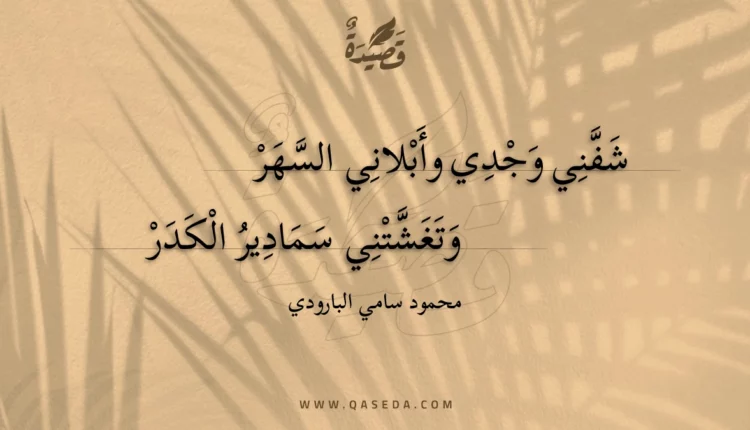 قَصِيدَةٌ
شَفَّنِي وَجْدِي وأَبْلانِي السَّهَرْ
وَتَغَشَّتْنِي سَمَادِيرُ الْكَدَرْ
محمود سامي البارودي
WWW.QASEDA.COM